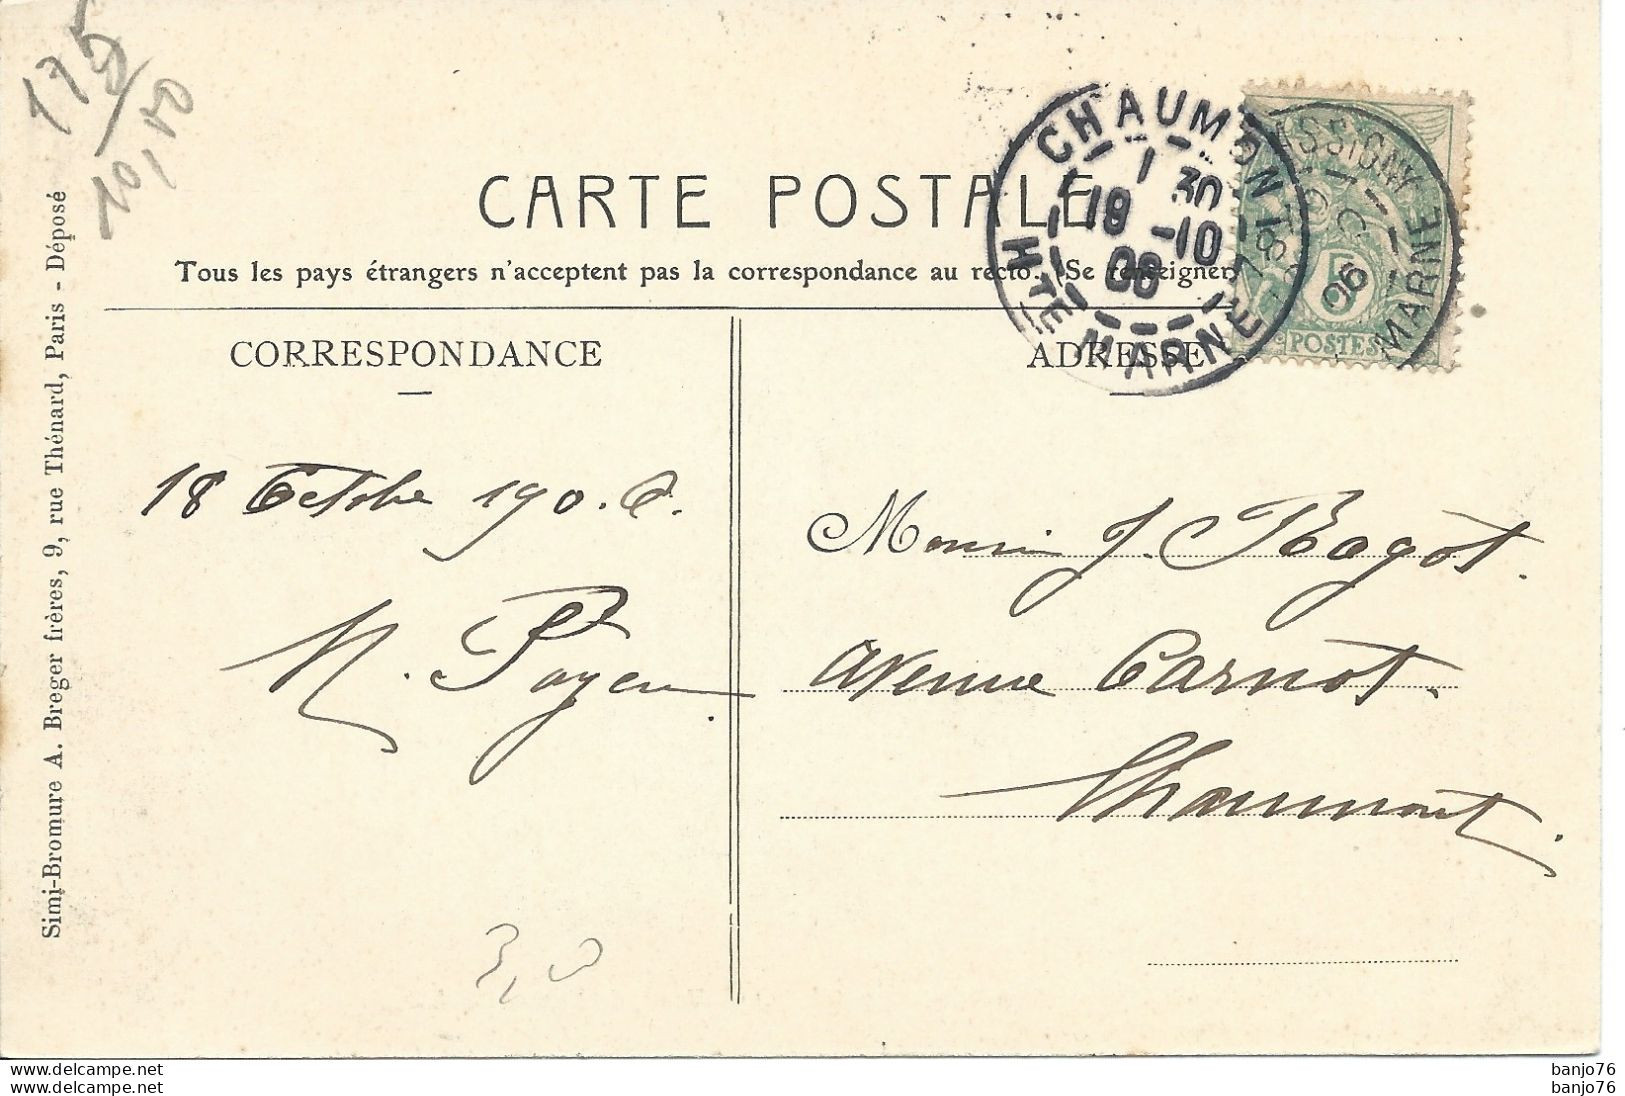 175
10,50
CARTE POSTALE
Tous les pays étrangers n'acceptent pas la correspondance au recto. (Se renseigner
CHAUMONT
1 30
18 -10
06
HTE MARNE
ASSIGNY
06
MARNE
5
POSTES
CORRESPONDANCE
ADRESSE
18 Octobre 190.6.
M. Payen.
Monsieur J. Ragot.
Avenue Carnot.
Chaumont.
Simi-Bromure A. Breger frères, 9, rue Thénard, Paris - Déposé
delcampe.net
banjo76
delcampe.net
banjo76